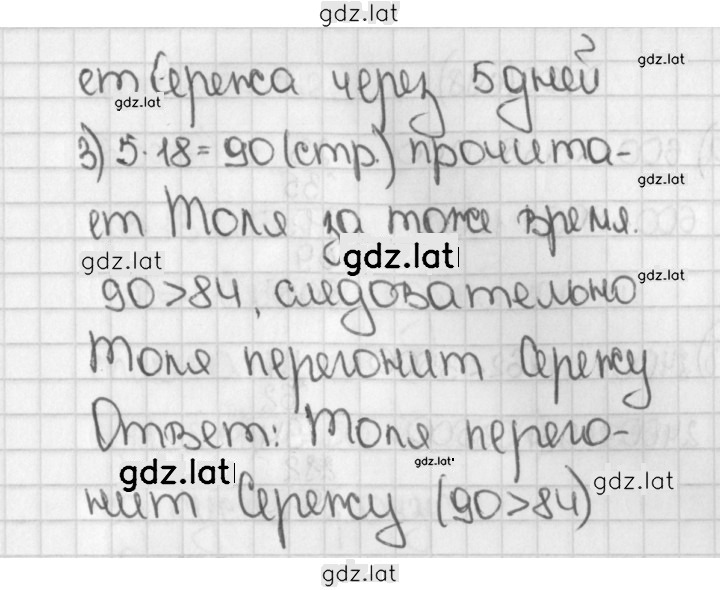 gdz.lat
ет Сережа через 5 дней ?
gdz.lat
gdz.lat
3) 5·18=90(стр.) прочита-
gdz.lat
ет Толя за тоже время.
gdz.lat
gdz.lat
gdz.lat
90>84, следовательно
Толя перегонит Сережу
Ответ: Толя перего-
gdz.lat
gdz.lat
gdz.lat
нит Сережу (90>84)
gdz.lat